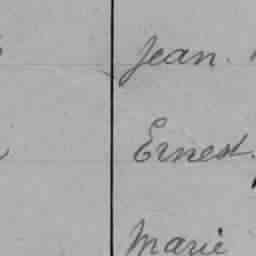 Jean.
Ernest.
Marie